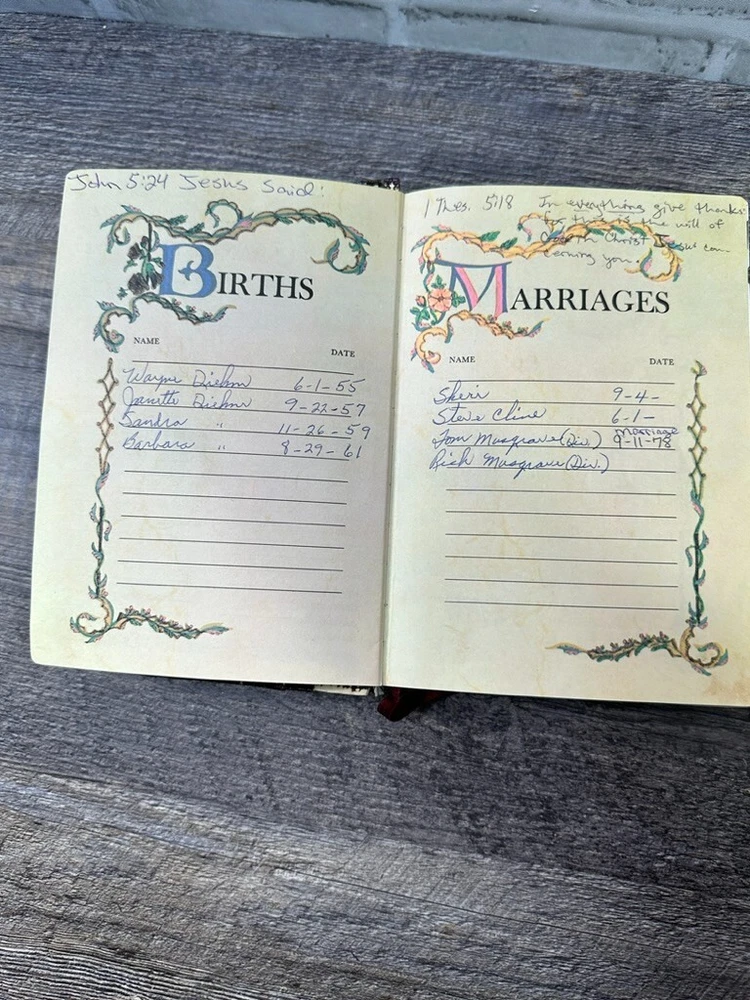 John 5:24 Jesus Said:
BIRTHS
NAME DATE
Wayne Diehm 6-1-55
Janette Diehm 9-22-57
Sandra " 11-26-59
Barbara " 8-29-61
1 Thes. 5:18 In everything give thanks:
for this is the will of
God in Christ Jesus con-
cerning you.
MARRIAGES
NAME DATE
Sherri 9-4-
Steve Cline 6-1-
Tom Musgrave (Div.) Marriage 9-11-78
Rich Musgrave (Div.)